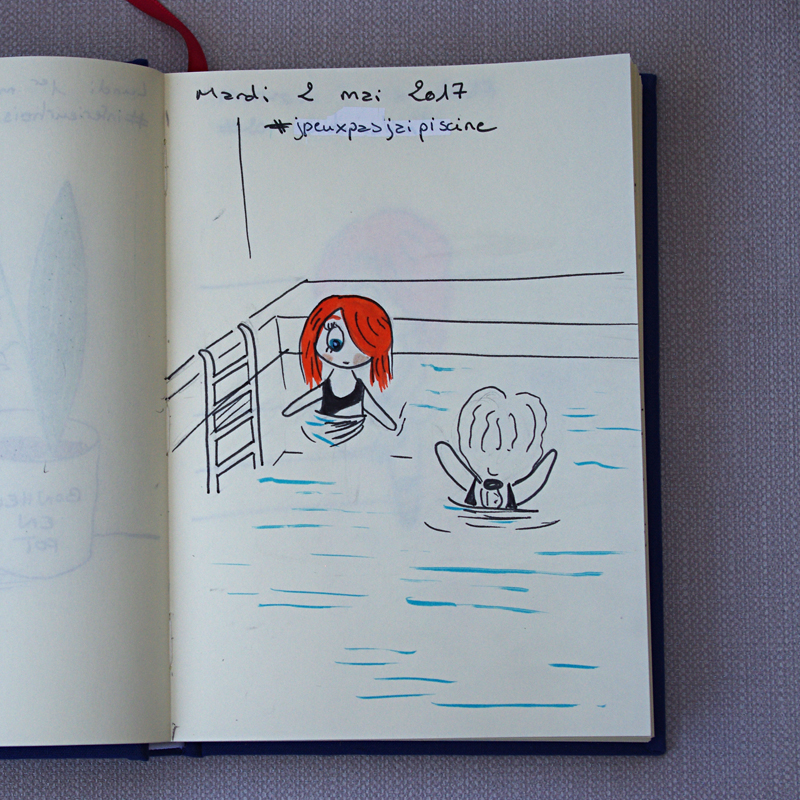 Mardi 2 mai 2017
#jpeuxpasjaipiscine